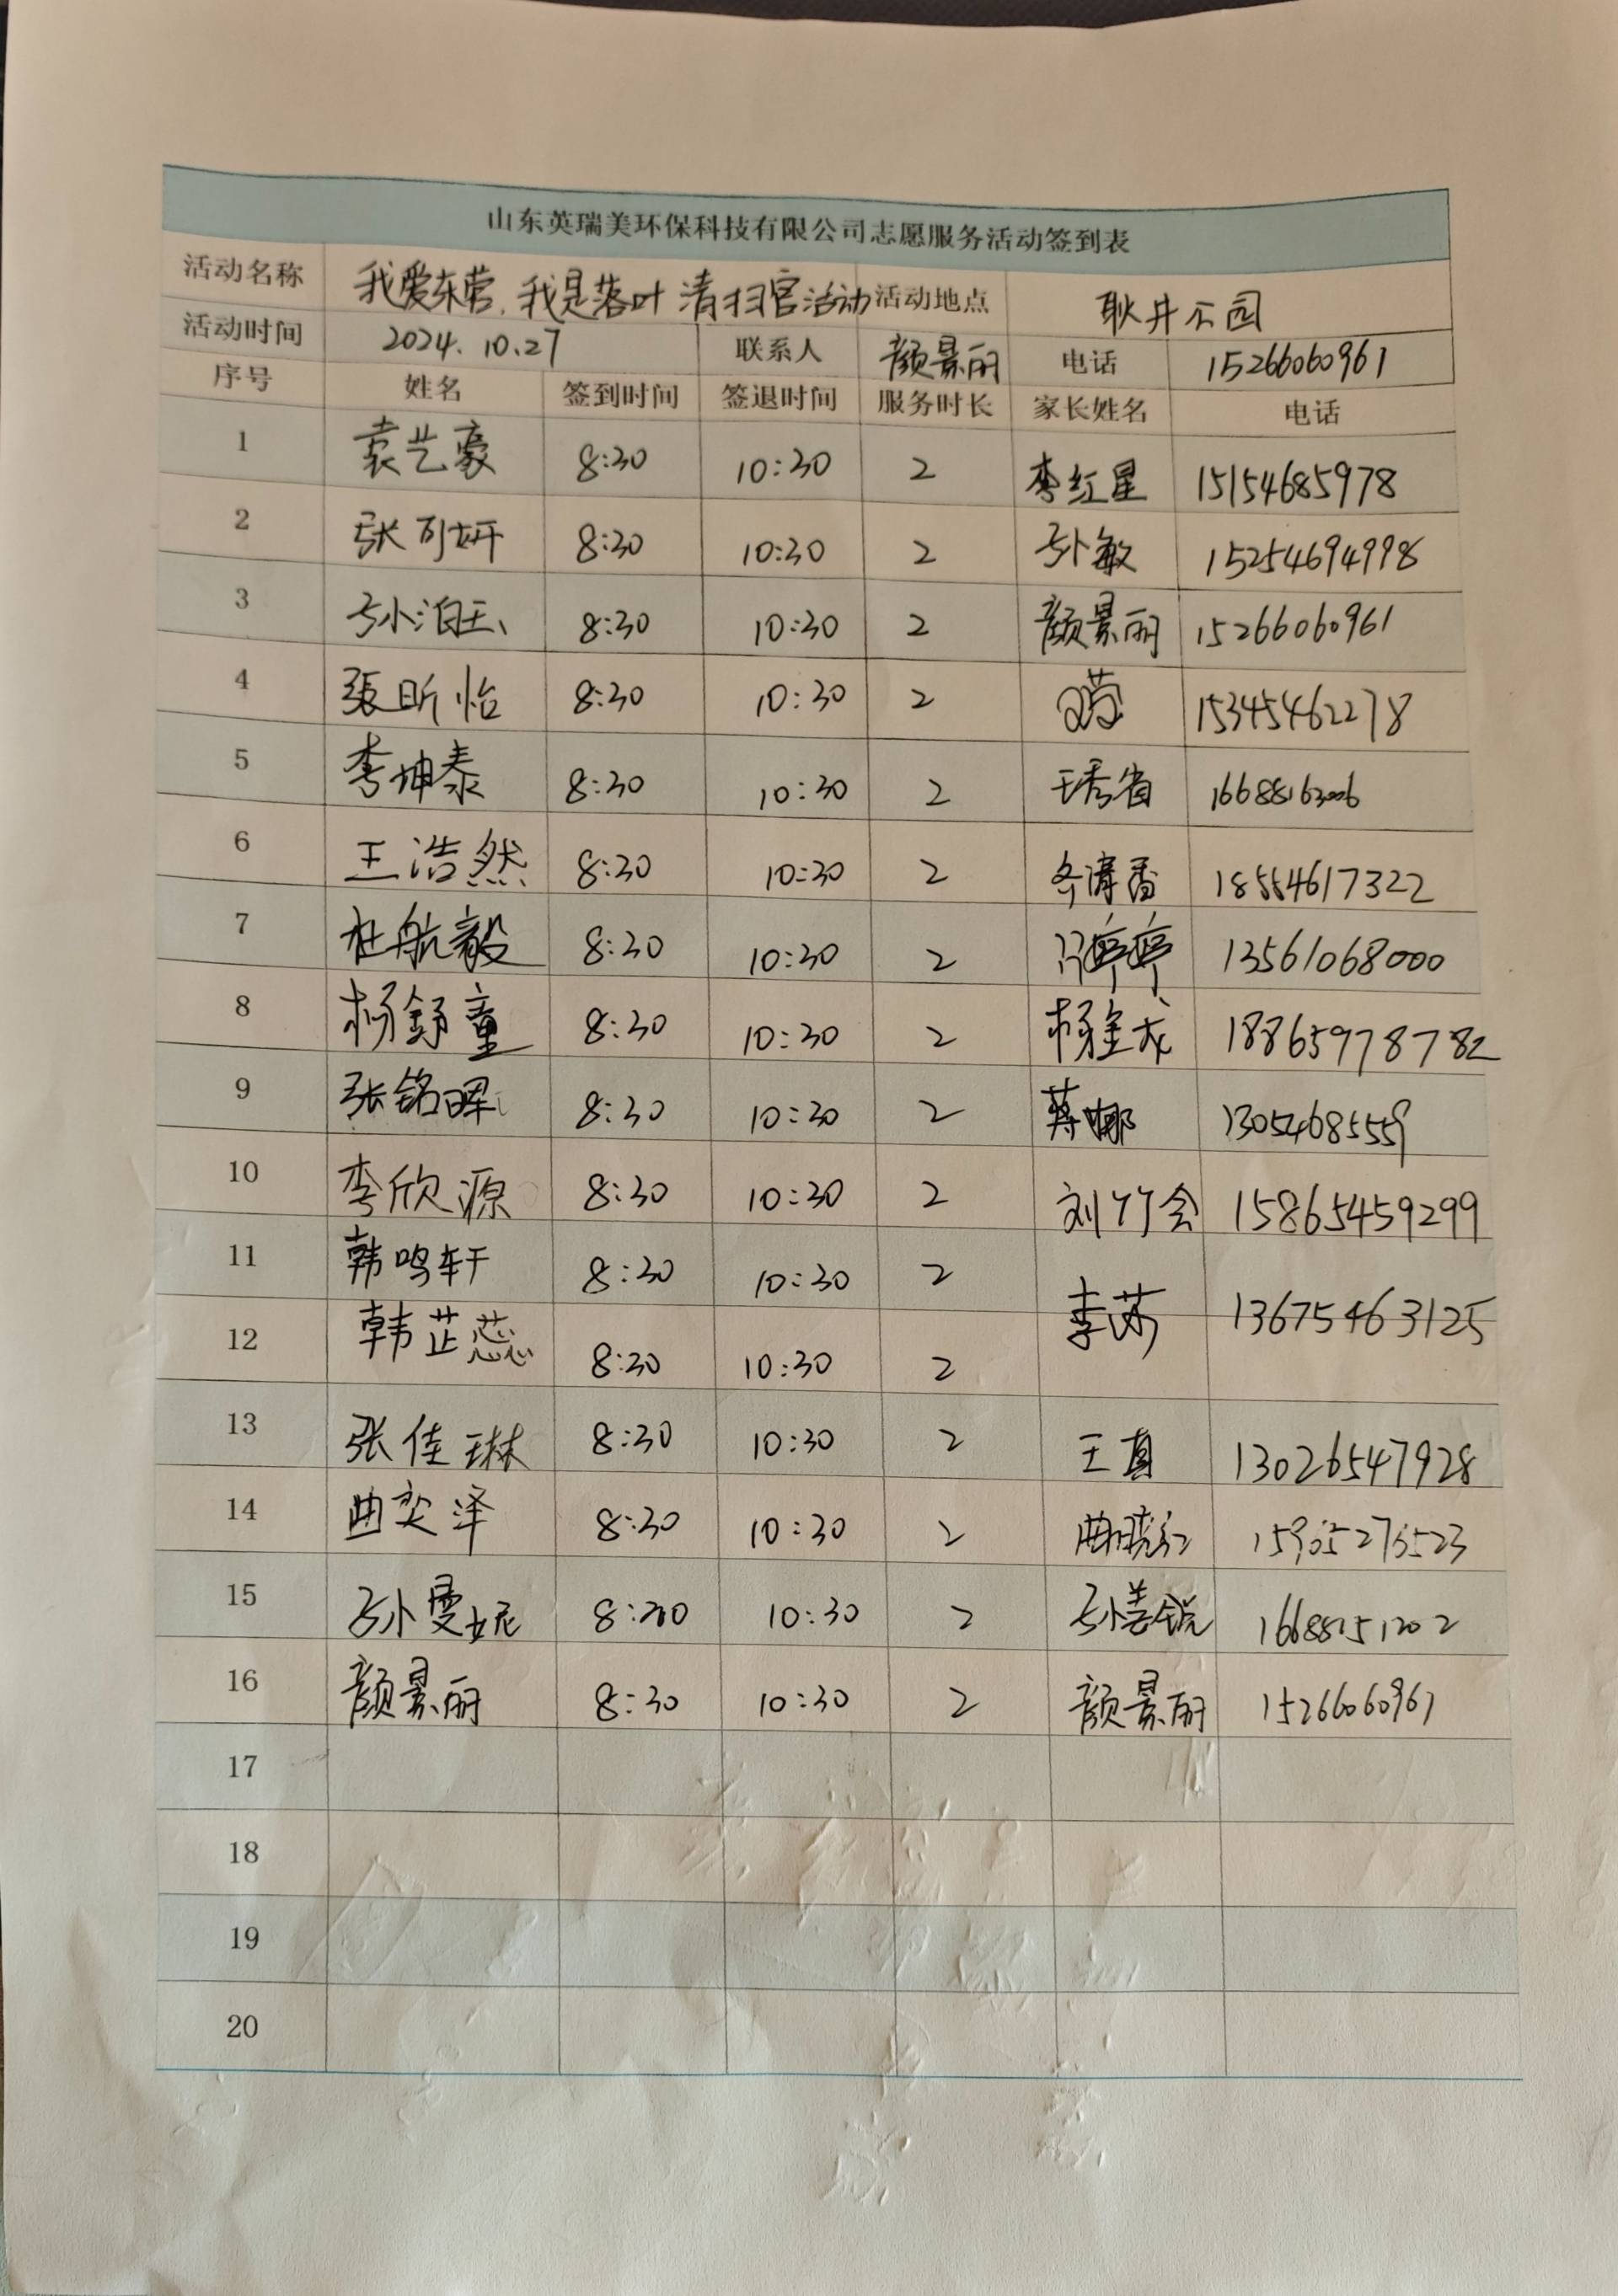 山东英瑞美环保科技有限公司志愿服务活动签到表
活动名称 我爱东营,我是落叶清扫官活动 活动地点 耿井公园
活动时间 2024.10.27 联系人 颜景丽 电话 15266060961
序号 姓名 签到时间 签退时间 服务时长 家长姓名 电话
1 袁艺豪 8:30 10:30 2 李红星 15154685978
2 张可妍 8:30 10:30 2 孙敏 15254694998
3 孙泊玉 8:30 10:30 2 颜景丽 15266060961
4 張昕怡 8:30 10:30 2 15345462278
5 李坤泰 8:30 10:30 2 王秀省 16688163006
6 王浩然 8:30 10:30 2 18554617322
7 杜航毅 8:30 10:30 2 冯婷婷 13561068000
8 杨舒童 8:30 10:30 2 杨金龙 18865978782
9 张铭晖 8:30 10:30 2 蒋娜 13054685559
10 李欣源 8:30 10:30 2 刘竹会 15865459299
11 韩鸣轩 8:30 10:30 2 李苏 13675463125
12 韩芷蕊 8:30 10:30 2
13 张佳琳 8:30 10:30 2 王真 13026547928
14 曲奕泽 8:30 10:30 2 曲晓红 15905276523
15 孙雯妮 8:30 10:30 2 孙美锐 16688151202
16 颜景丽 8:30 10:30 2 颜景丽 15266060961
17
18
19
20